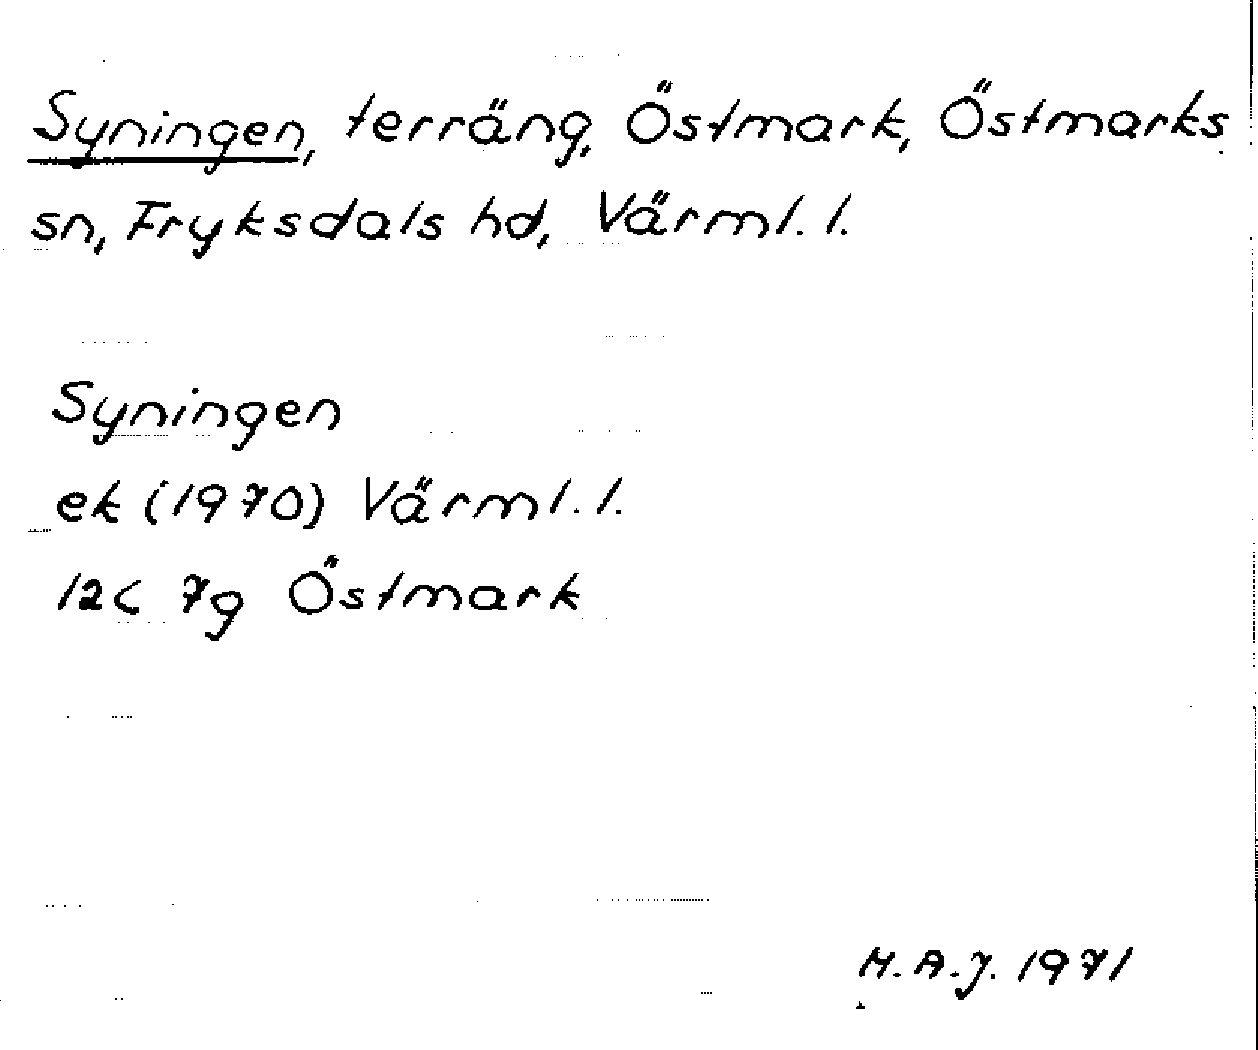 Syningen, terräng, Östmark, Östmarks
sn, Fryksdals hd, Värml. l.
Syningen
ek (1970) Värml. l.
12C 7g Östmark
M.A.J. 1971